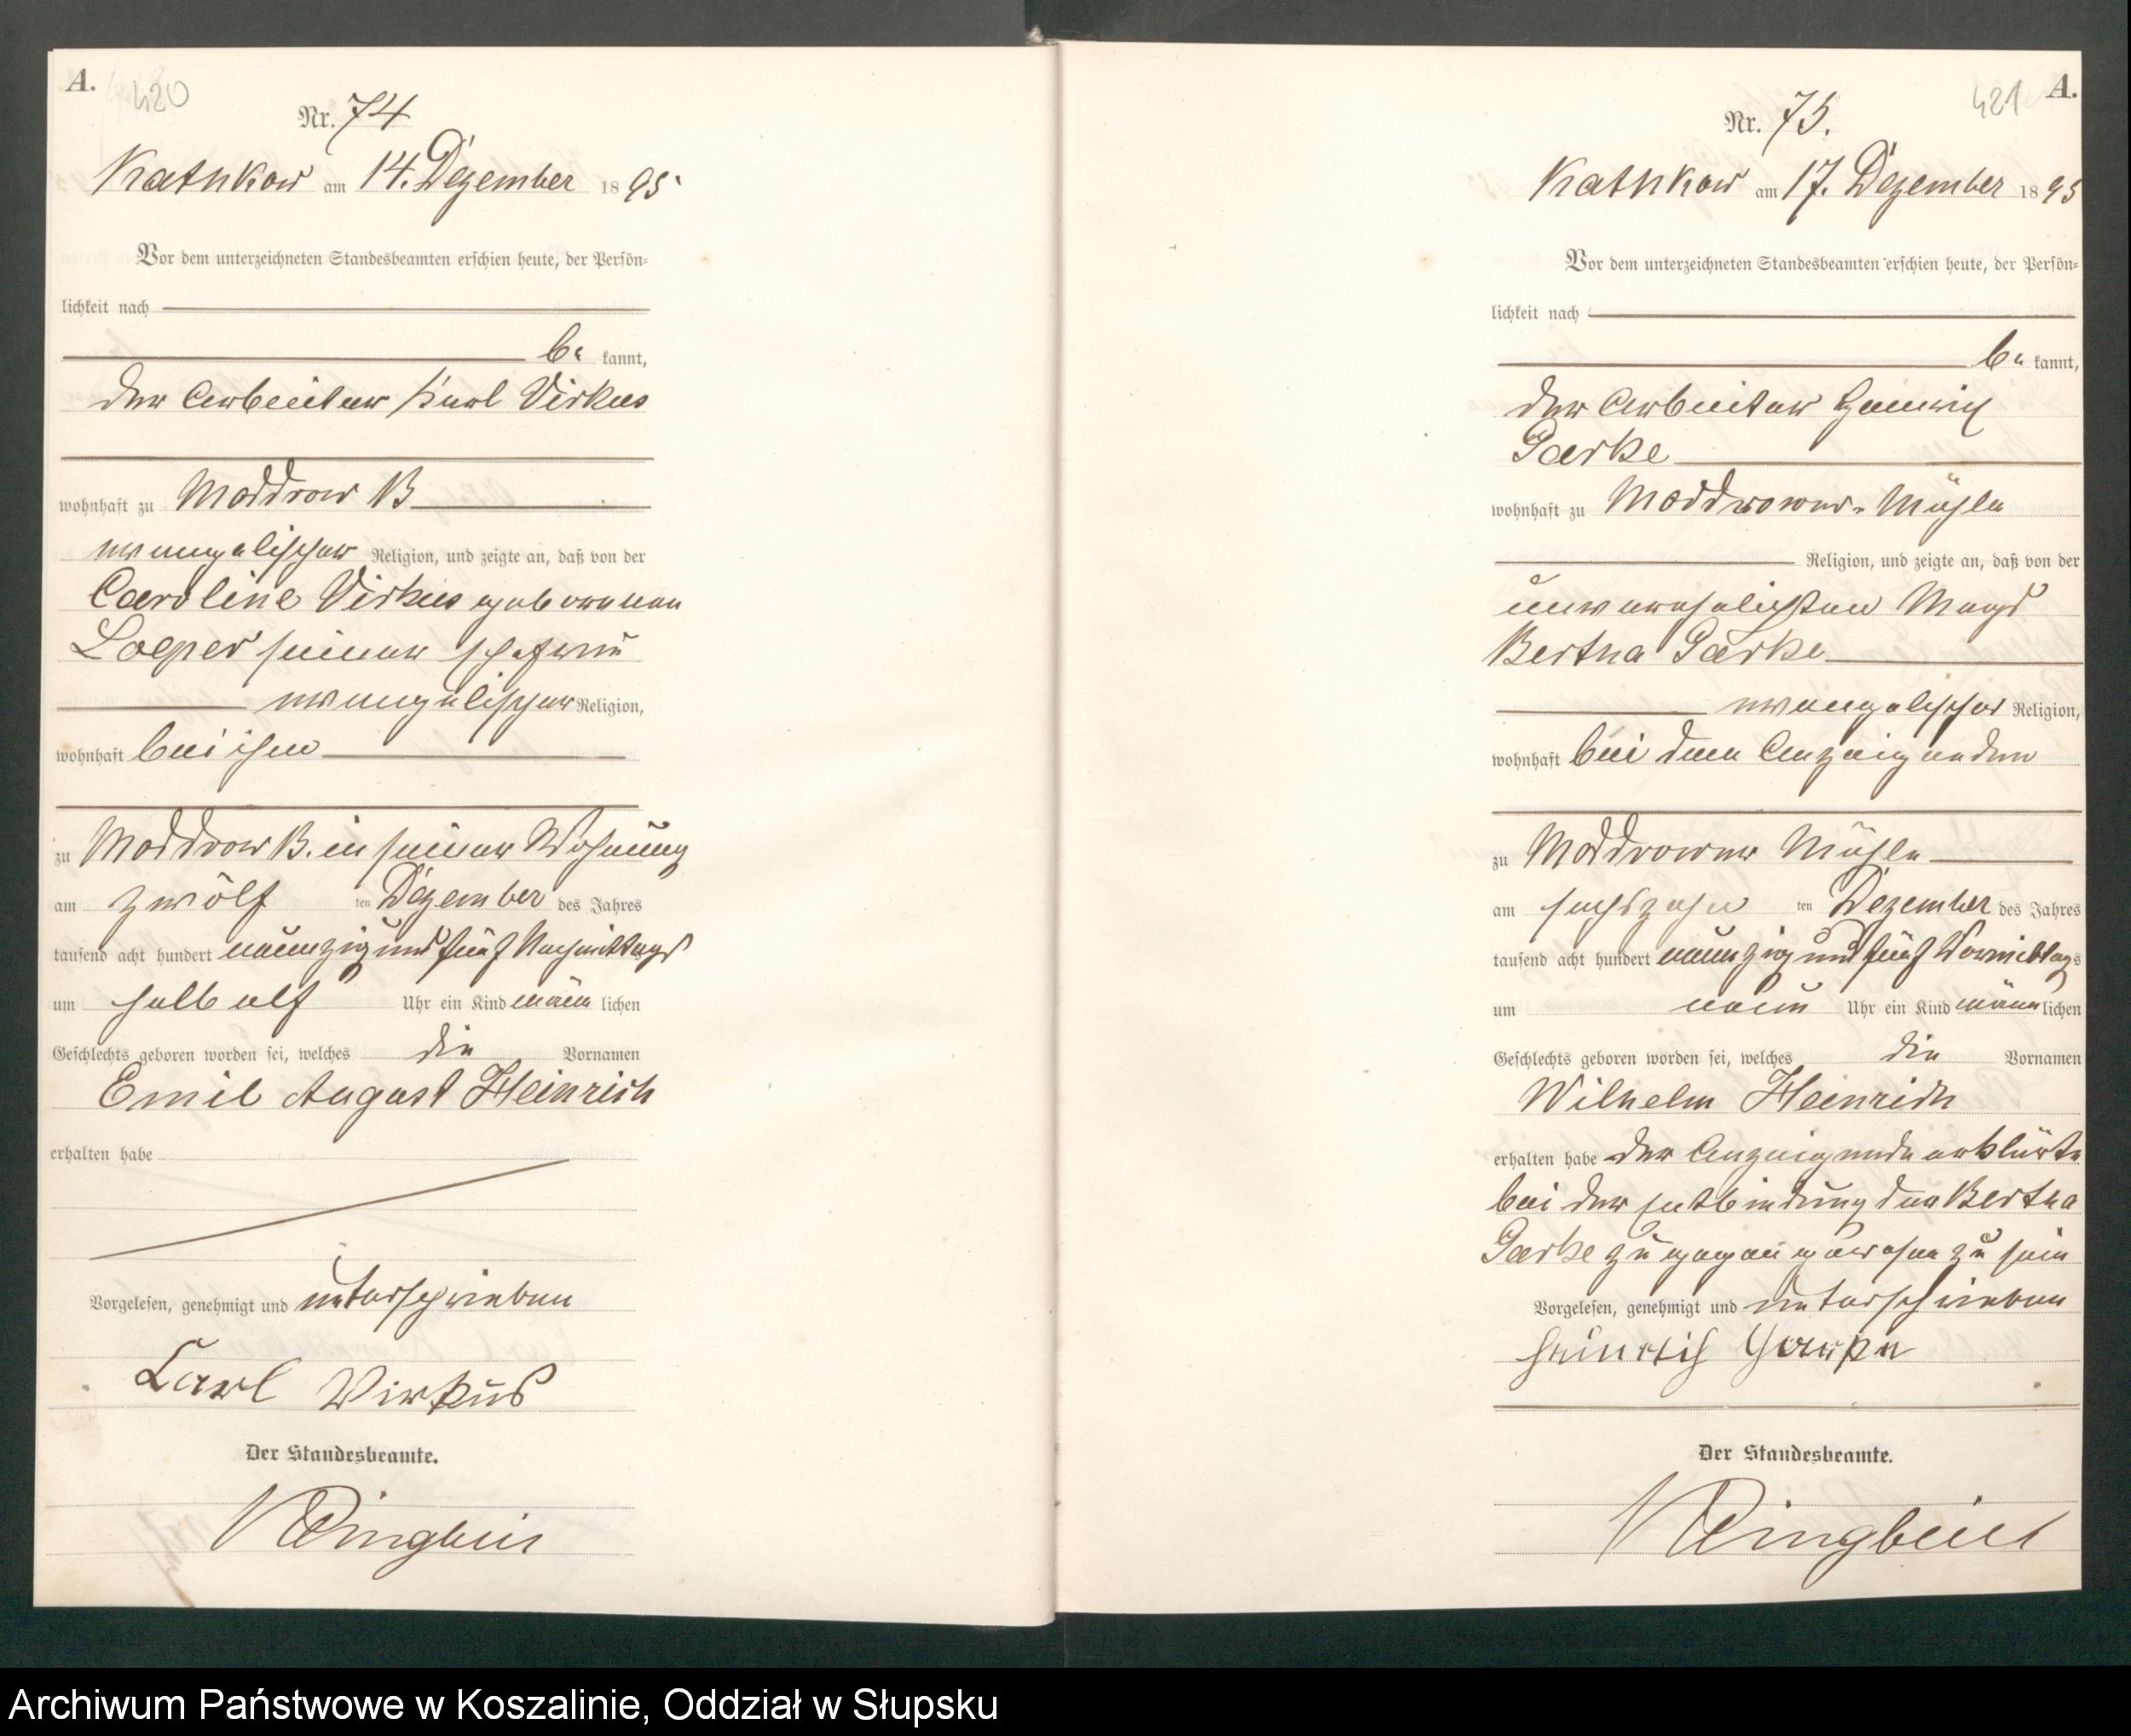 A.
420
Nr. 74
Kathkow am 14. Dezember 1895
Vor dem unterzeichneten Standesbeamten erschien heute, der Persön-
lichkeit nach
be kannt,
der Arbeiter Karl Virkus
wohnhaft zu Moddrow B
evangelischer Religion, und zeigte an, daß von der
Caroline Virkus geborenen
Loeper seiner Ehefrau
evangelischer Religion,
wohnhaft bei ihm
zu Moddrow B. in seiner Wohnung
am zwölf ten Dezember des Jahres
tausend acht hundert neunzig und fünf Nachmittags
um halb elf Uhr ein Kind männ lichen
Geschlechts geboren worden sei, welches die Vornamen
Emil August Heinrich
erhalten habe
Vorgelesen, genehmigt und unterschrieben
Carl Virkus
Der Standesbeamte.
A.
421
Nr. 75.
Kathkow am 17. Dezember 1895
Vor dem unterzeichneten Standesbeamten erschien heute, der Persön-
lichkeit nach
be kannt,
der Arbeiter Heinrich
Garke
wohnhaft zu Moddrower-Mühle
Religion, und zeigte an, daß von der
unverehelichten Magd
Bertha Garke
evangelischer Religion,
wohnhaft bei dem Anzeigenden
zu Moddrower Mühle
am sechszehn ten Dezember des Jahres
tausend acht hundert neunzig und fünf Vormittags
um neun Uhr ein Kind männ lichen
Geschlechts geboren worden sei, welches die Vornamen
Wilhelm Heinrich
erhalten habe Der Anzeigende erklärte
bei der Entbindung der Bertha
Garke zugegen gewesen zu sein
Vorgelesen, genehmigt und unterschrieben
Heinrich Garke
Der Standesbeamte.
Archiwum Państwowe w Koszalinie, Oddział w Słupsku